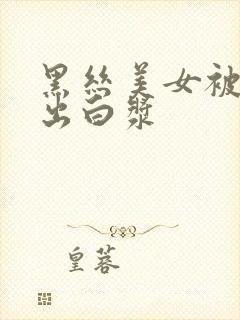 黑丝美女被
出白浆
皇蓉